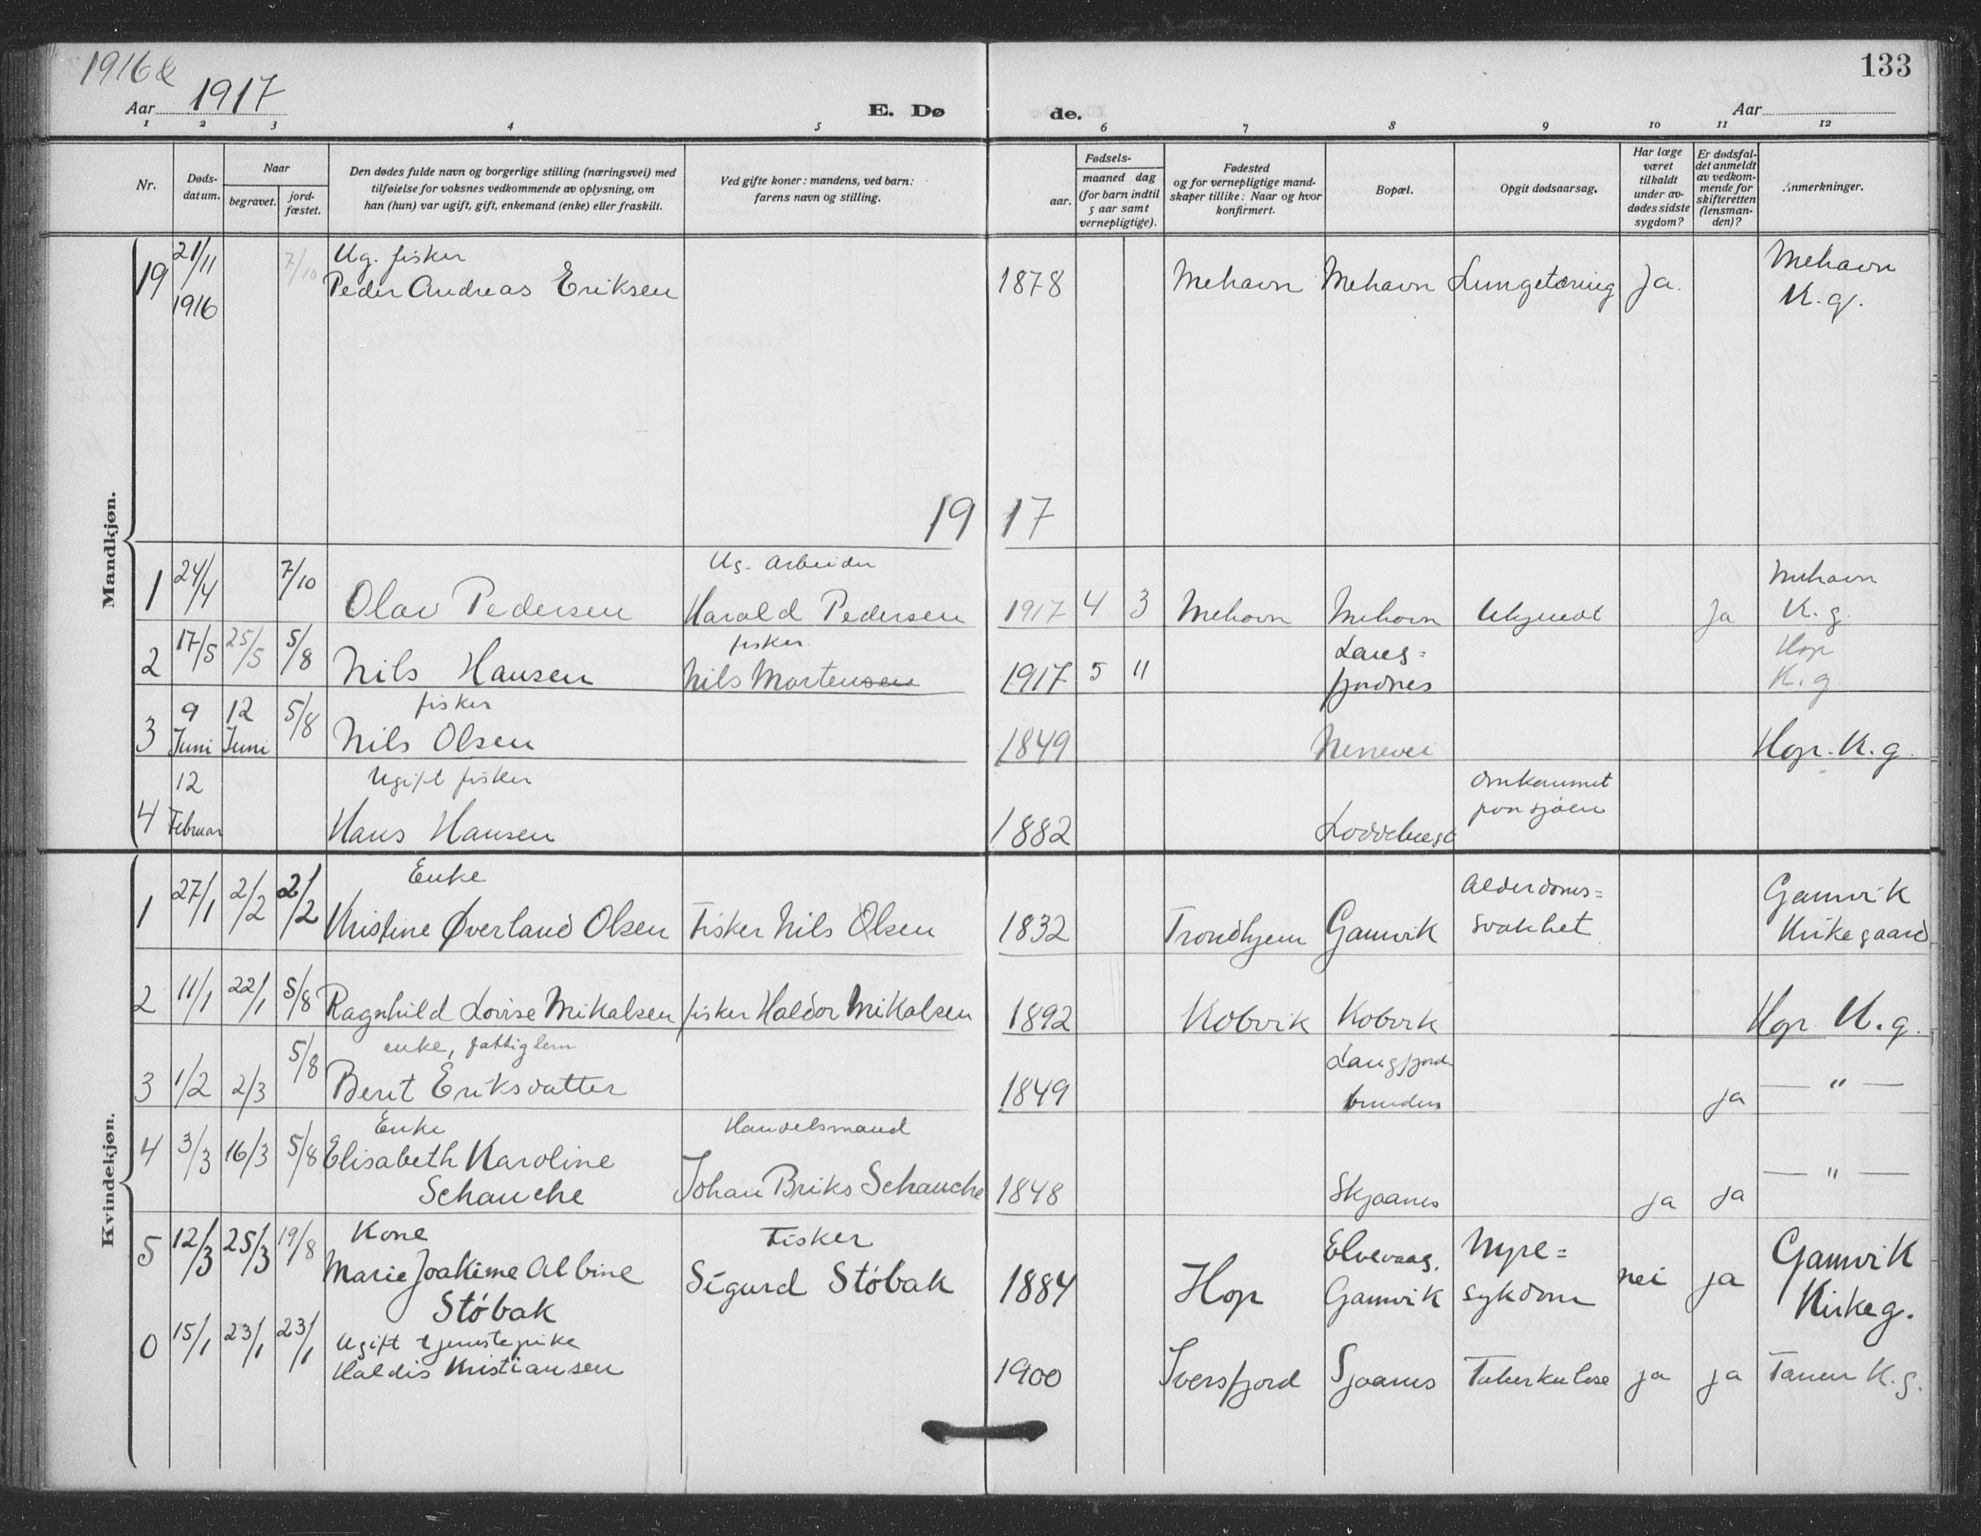 1916 &
Aar 1917
E. Dø de.
Aar
133
1 2 3 4 5 6 7 8 9 10 11 12
Nr.
Døds-
datum.
Naar
begravet.
jord-
fæstet.
Den dødes fulde navn og borgerlige stilling (næringsvei) med
tilføielse for voksnes vedkommende av oplysning, om
han (hun) var ugift, gift, enkemand (enke) eller fraskilt.
Ved gifte koner: mandens, ved barn:
farens navn og stilling.
Fødsels-
aar.
maaned dag
(for barn indtil
5 aar samt
vernepligtige).
Fødested
og for vernepligtige mand-
skaper tillike: Naar og hvor
konfirmert.
Bopæl.
Opgit dødsaarsag.
Har læge
været
tilkaldt
under av-
dødes sidste
sygdom?
Er dødsfal-
det anmeldt
av vedkom-
mende for
skifteretten
(lensman-
den)?
Anmerkninger.
Mandkjøn.
21/11 Ug. fisker Mehavn
19 1916 7/10 Peder Andreas Eriksen 1878 Mehavn Mehavn Lungetæring Ja. K. g.
19 17
Ug. Arbeider Mehavn
1 24/4 7/10 Olav Pedersen Harald Pedersen 1917 4 3 Mehavn Mehavn Ukjendt Ja K. g.
fisker. Hop
2 17/5 25/5 5/8 Nils Hansen Nils Mortensen 1917 5 11 Langfjordnes K. g.
9 12 fisker
3 Juni Juni 5/8 Nils Olsen 1849 Hop. K. g.
12 Ugift fisker Omkommet
paa sjøen
4 Februar Hans Hansen 1882
Kvindekjøn.
Enke Alderdoms= Gamvik
1 27/1 2/2 2/2 Kristine Øverland Olsen Fisker Nils Olsen 1832 Trondhjem Gamvik svakhet Kirkegaard
2 11/1 22/1 5/8 Ragnhild Lovise Mikalsen fisker Haldor Mikalsen 1892 Kobvik Kobvik Hop K. g.
enke, fattiglem Langfjord
3 1/2 2/3 5/8 Berit Eriksdatter 1849 bunden ja — " —
Enke Handelsmand
4 3/3 16/3 5/8 Elisabeth Karoline — " —
Schanche Johan Briks Schanche 1848 Skjaanes ja ja
Kone Fisker Elvevaag. Nyre= Gamvik
5 12/3 25/3 19/8 Marie Joakime Albine Sigurd Støbak 1884 Hop Gamvik sykdom nei ja Kirkeg.
Støbak
0 15/1 23/1 23/1 Ugift tjenestepike
Haldis Kristiansen 1900 Iversfjord Sjaanes Tuberkulose ja ja Tanen K. g.